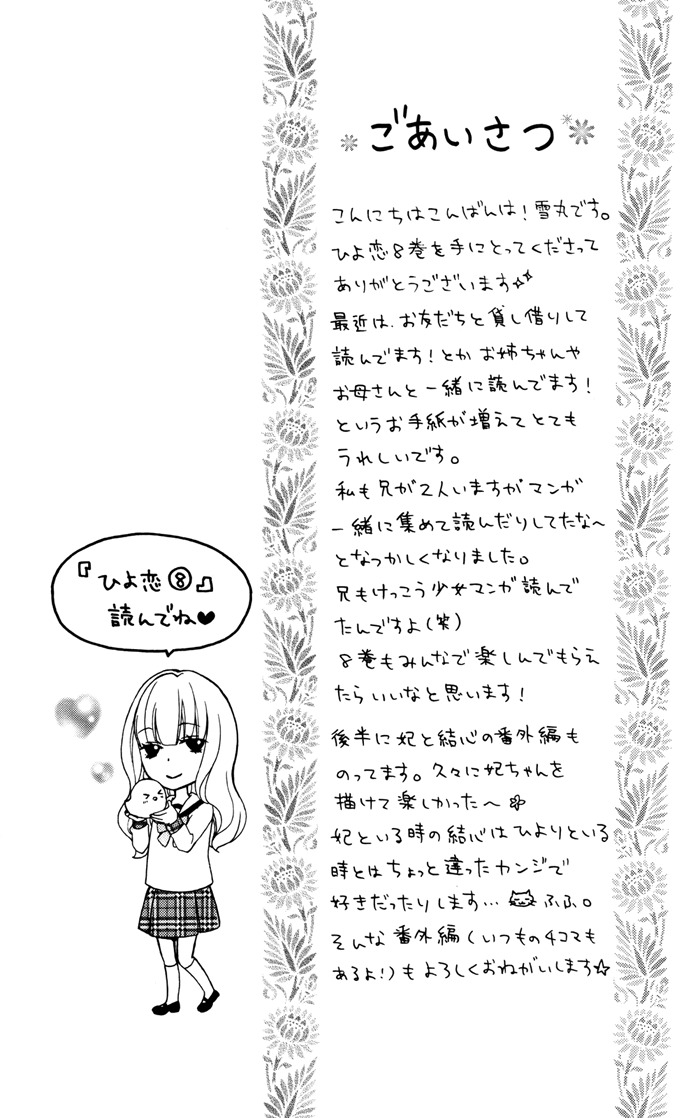 ごあいさつ
こんにちはこんばんは！雪丸です。
ひよ恋８巻を手にとってくださって
ありがとうございます☆
最近は、お友だちと貸し借りして
読んでます！とか お姉ちゃんや
お母さんと一緒に読んでます！
というお手紙が増えてとても
うれしいです。
私も兄が２人いますがマンガ
一緒に集めて読んだりしてたな〜
となつかしくなりました。
兄もけっこう少女マンガ読んで
たんですよ（笑）
８巻もみんなで楽しんでもらえ
たらいいなと思います！
後半に妃と結心の番外編も
のってます。久々に妃ちゃんを
描けて楽しかった〜
妃といる時の結心はひよりといる
時とはちょっと違ったカンジで
好きだったりします…ふふ。
そんな番外編（いつもの４コマも
あるよ！）もよろしくおねがいします☆
『ひよ恋⑧』
読んでね♥